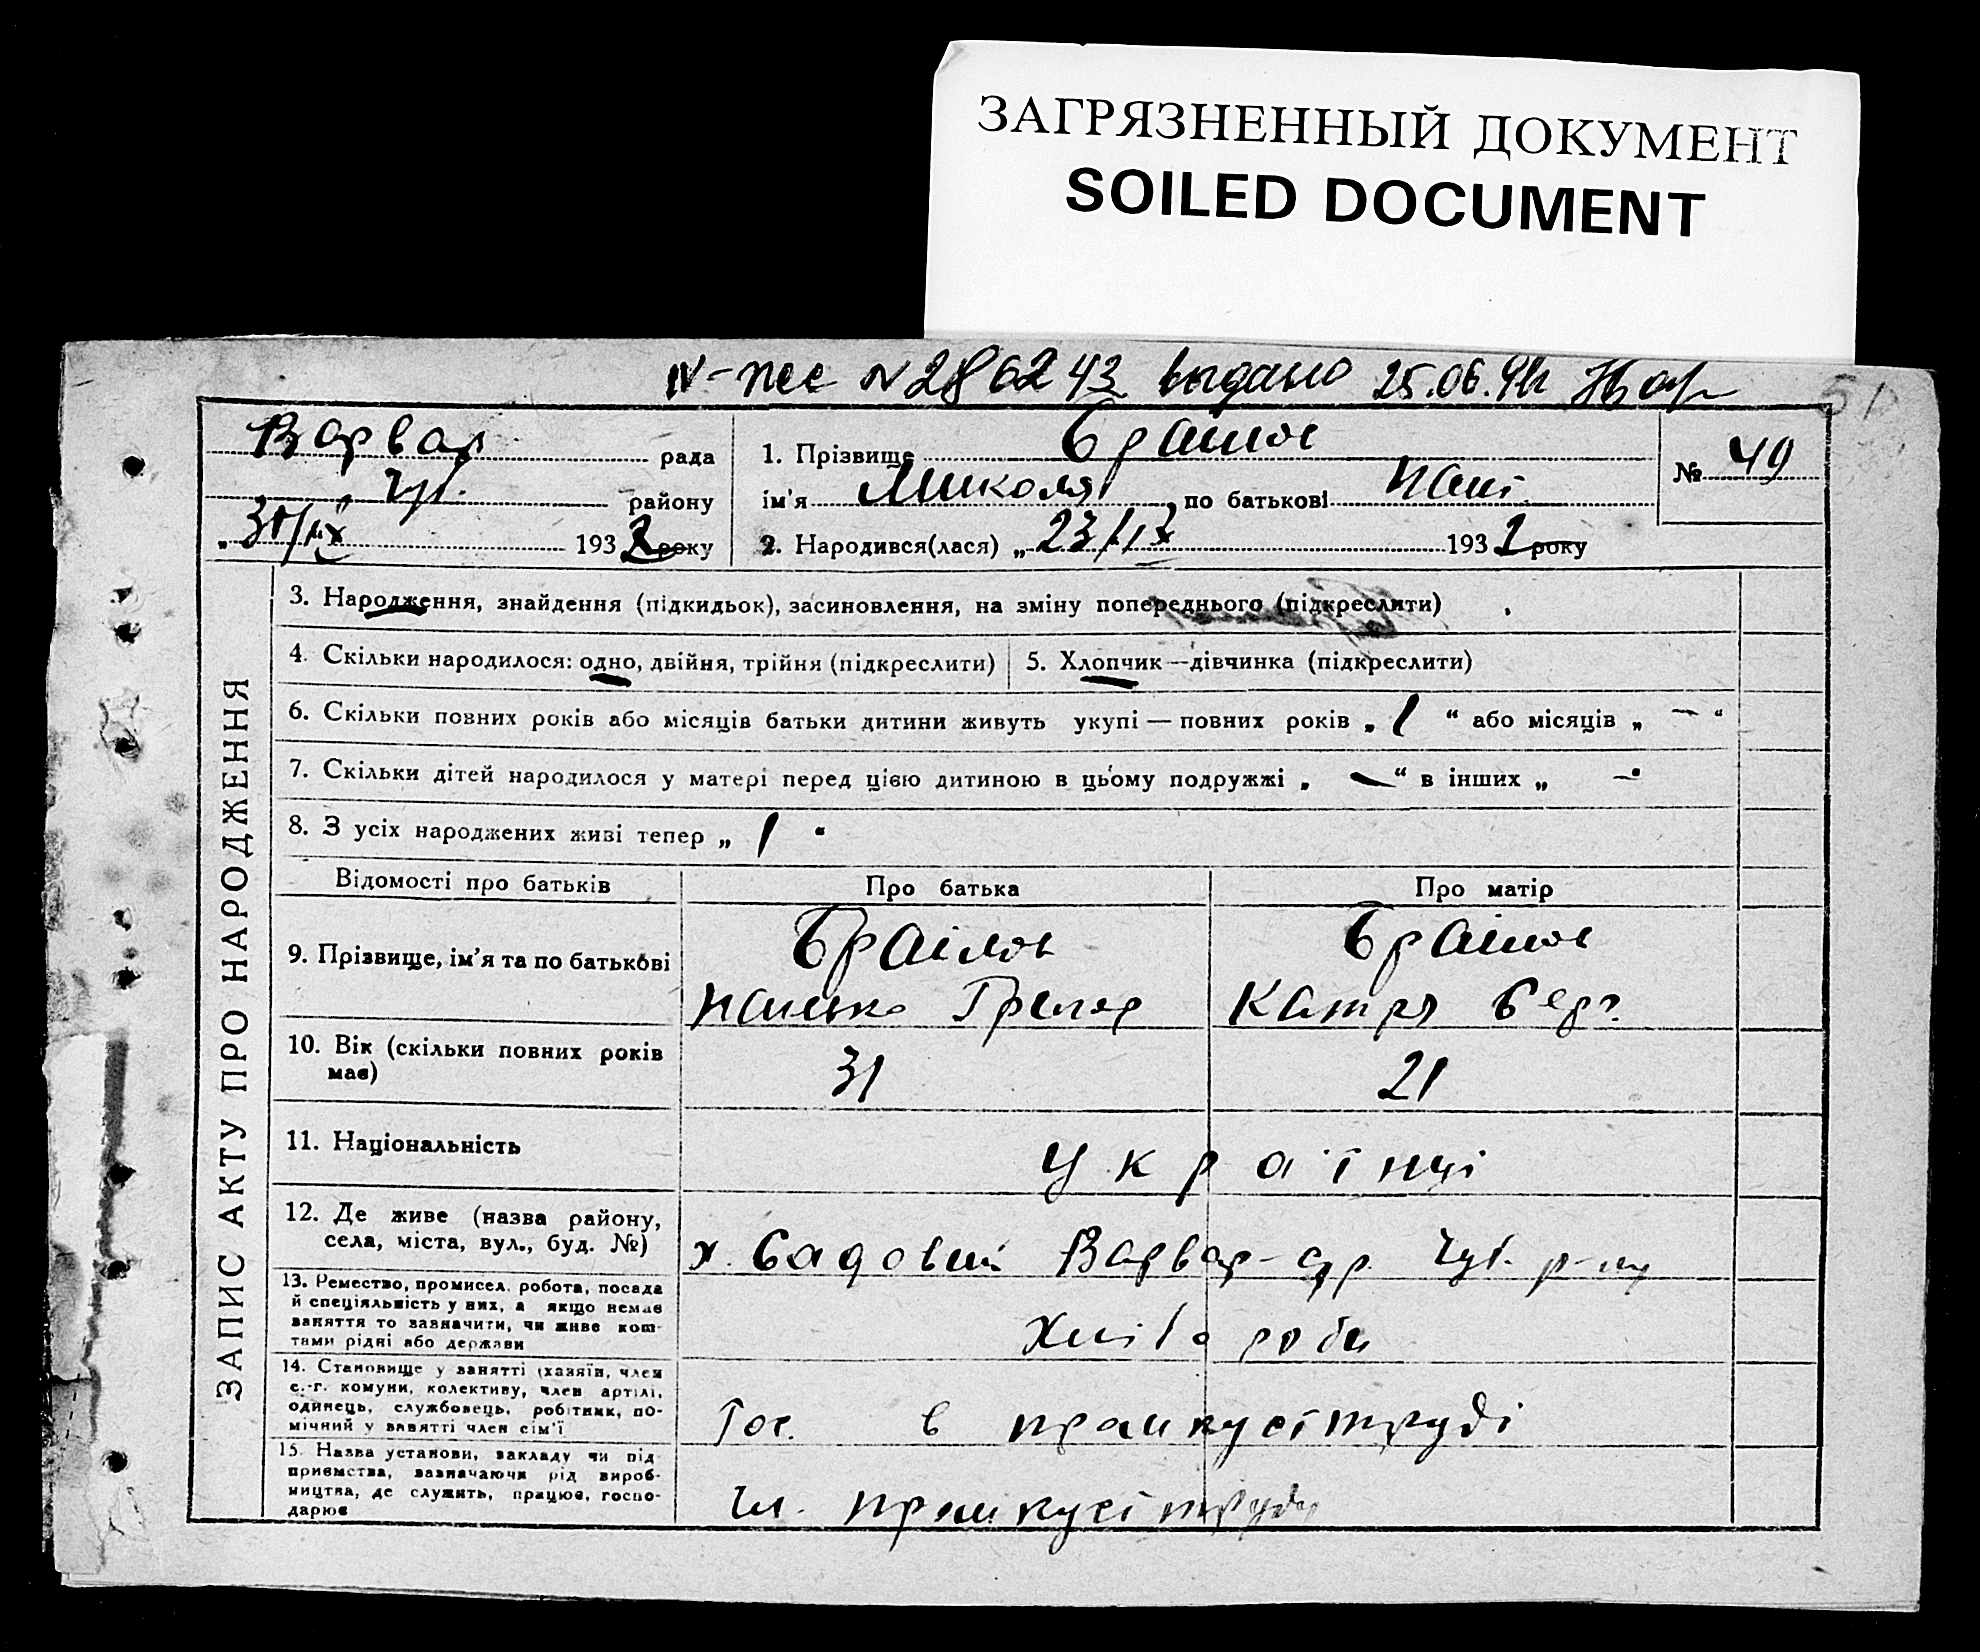 ЗАГРЯЗНЕННЫЙ ДОКУМЕНТ
SOILED DOCUMENT
N 286243 выдано 25.06.
51
Варвар. рада
Чут. району
„30/IX 1932 року
1. Прізвище Браілов
ім'я Миколя по батькові
№ 49
2. Народився(лася) „23/IX 1932 року
ЗАПИС АКТУ ПРО НАРОДЖЕННЯ
3. Народження, знайдення (підкидьок), засиновлення, на зміну попереднього (підкреслити)
4. Скільки народилося: одно, двійня, трійня (підкреслити)
5. Хлопчик—дівчинка (підкреслити)
6. Скільки повних років або місяців батьки дитини живуть укупі — повних років „ 1 “ або місяців „ — “
7. Скільки дітей народилося у матері перед цією дитиною в цьому подружжі „ — “ в інших „ — “
8. З усіх народжених живі тепер „ 1 “
Відомості про батьків
Про батька
Про матір
9. Прізвище, ім'я та по батькові
Браілов
Григор
Браілов
Катря
10. Вік (скільки повних років
має)
31
21
11. Національність
Українці
12. Де живе (назва району,
села, міста, вул., буд. №)
х. Садовий Варвар- с/р. Чут. р-ну
13. Ремество, промисел, робота, посада
й спеціяльність у них, а якщо немає
заняття то зазначити, чи живе кош-
тами рідні або держави
Хлібороби
14. Становище у занятті (хазяїн, член
с.-г. комуни, колективу, член артілі,
одинець, службовець, робітник, по-
мічний у занятті член сім'ї
Гос. в промкустпруді
15. Назва установи, закладу чи під-
приємства, зазначаючи рід вироб-
ництва, де служить, працює, госпо-
дарює
Чл.